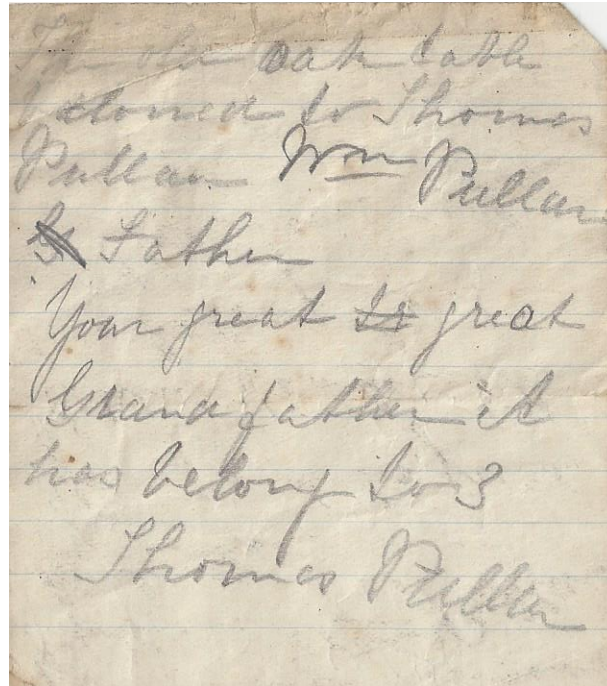 The old oak table
beloned to Thomas
Pullan Wm Pullan
Father
Your great great
Grandfather it
has belong to 3
Thomas Pullan